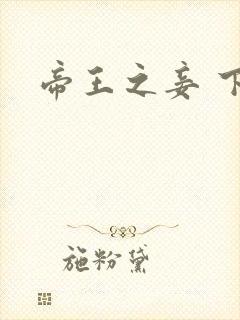 帝王之妾 下
施粉黛